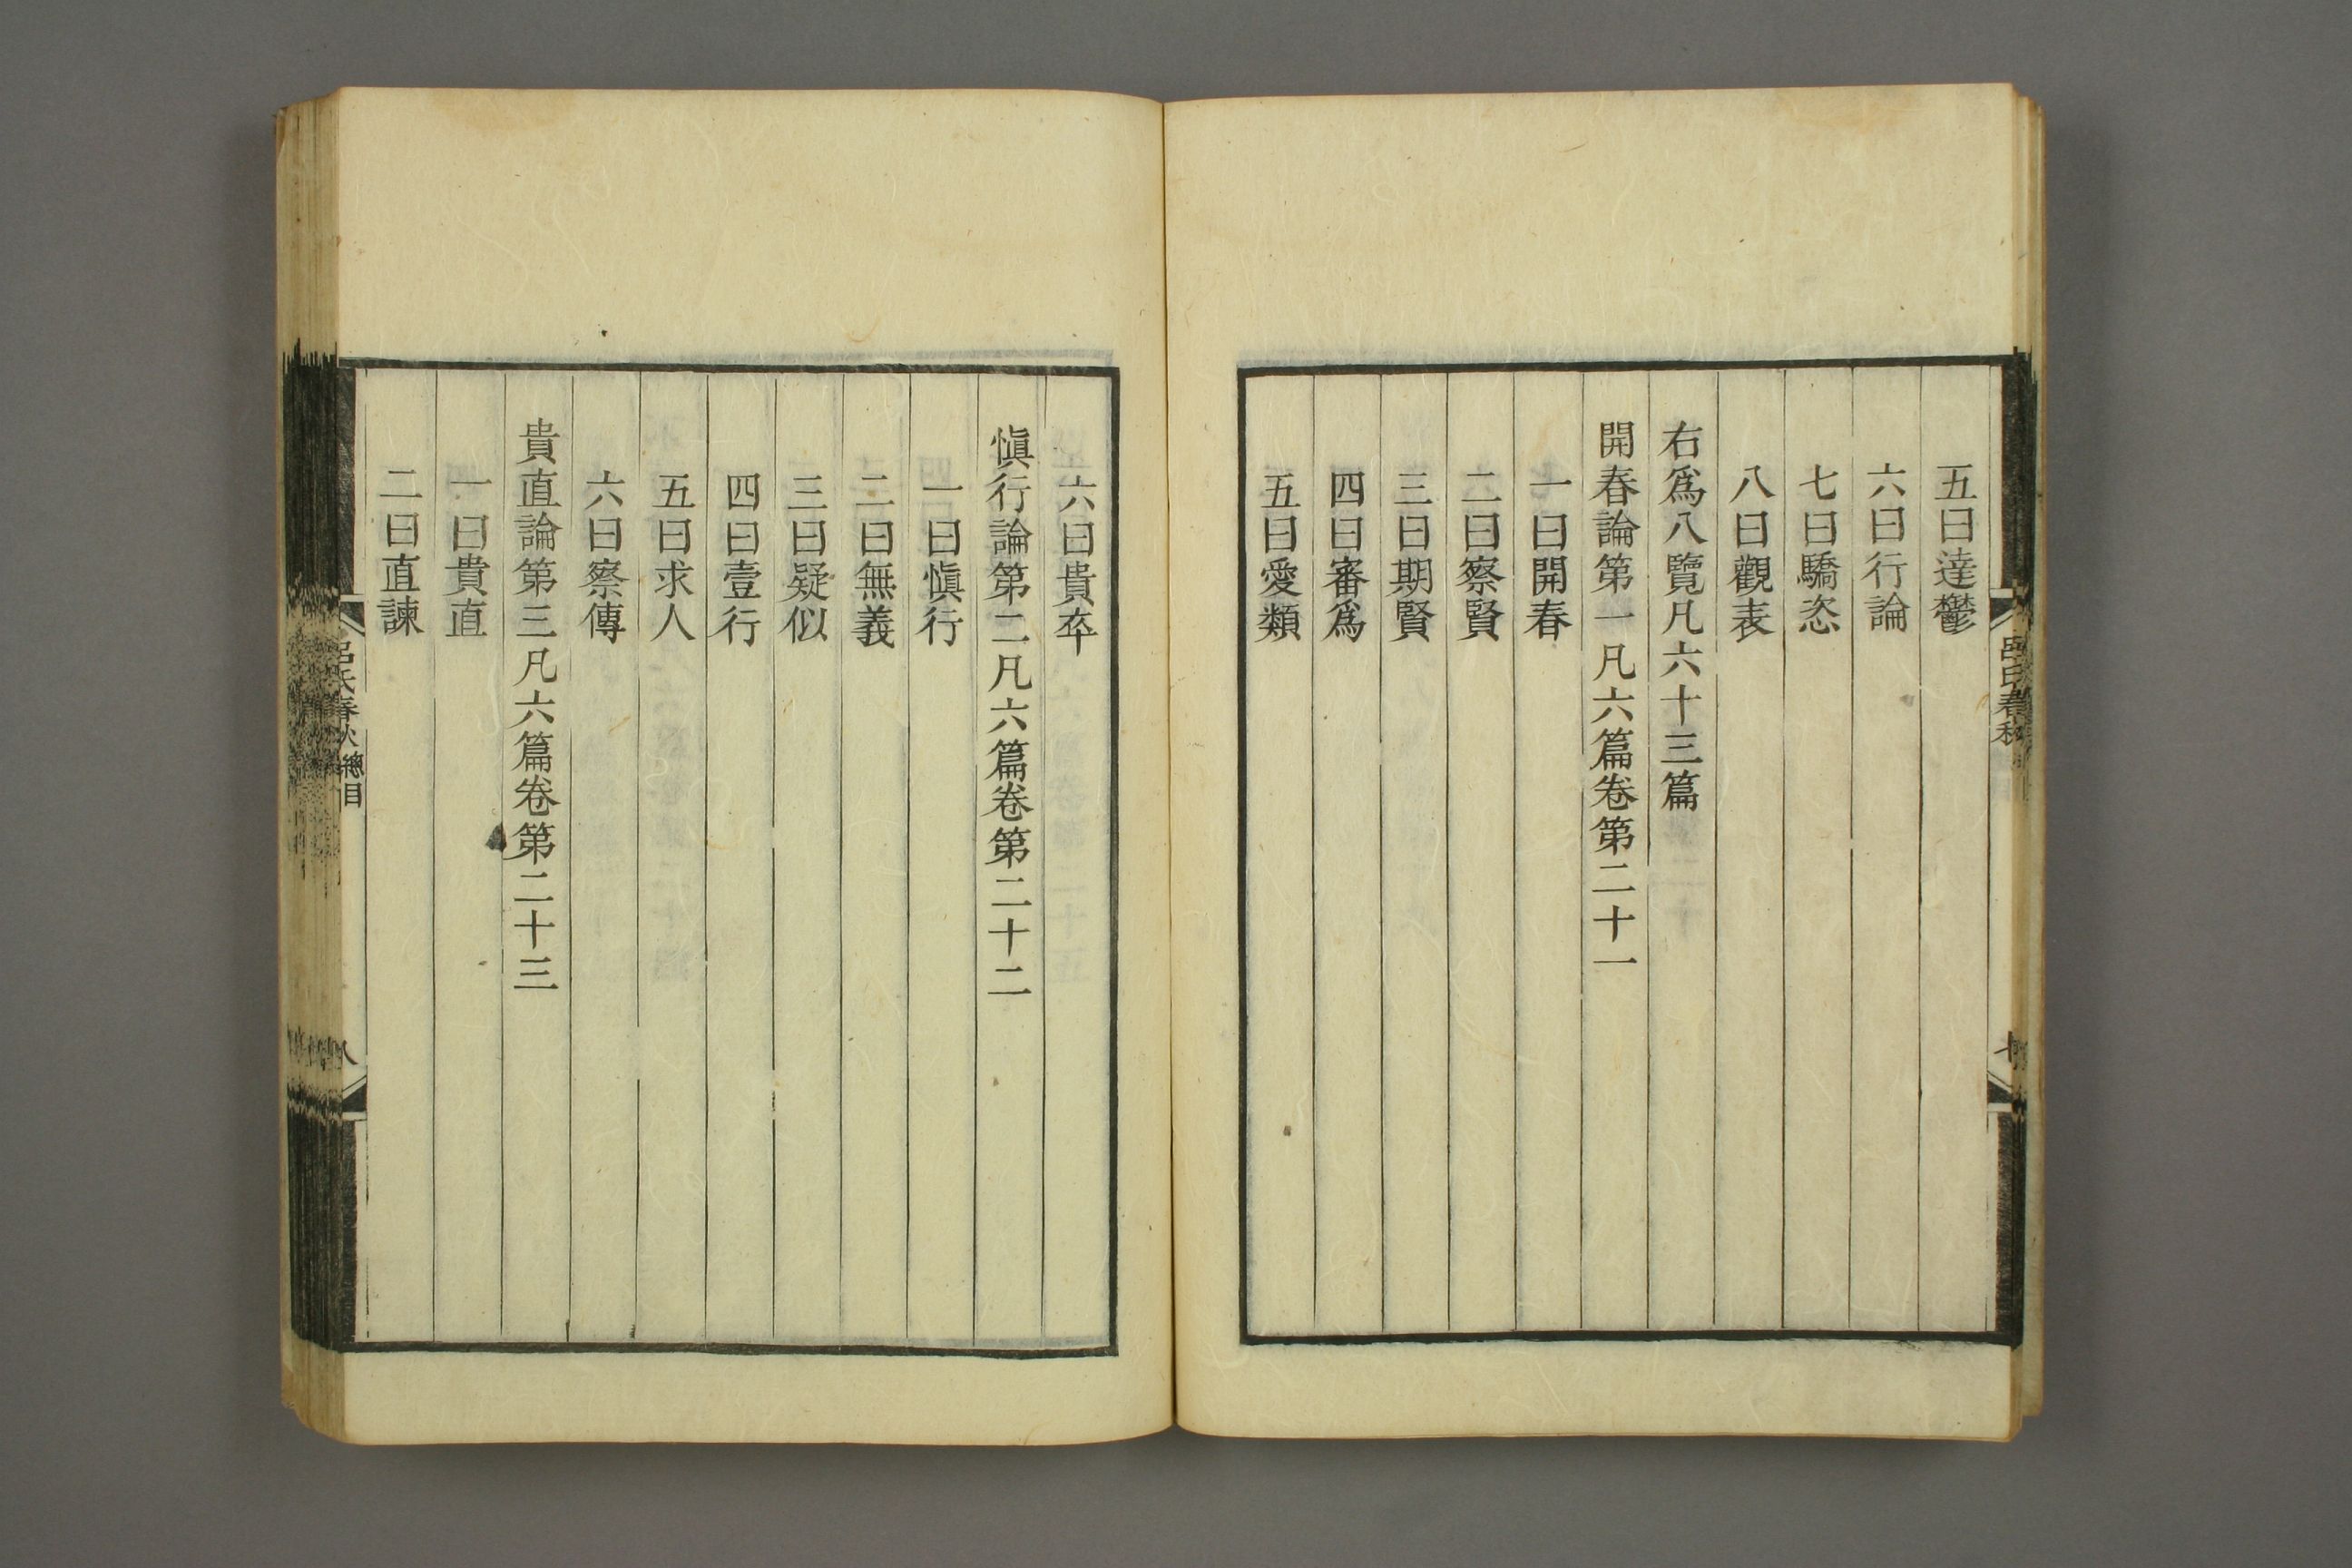 五曰達鬱
六曰行論
七曰驕恣
八曰觀表
右爲八覽凡六十三篇
開春論第一凡六篇卷第二十一
一曰開春
二曰察賢
三曰期賢
四曰審爲
五曰愛類
六曰貴卒
愼行論第二凡六篇卷第二十二
一曰愼行
二曰無義
三曰疑似
四曰壹行
五曰求人
六曰察傳
貴直論第三凡六篇卷第二十三
一曰貴直
二曰直諫
呂氏春秋 總目
八